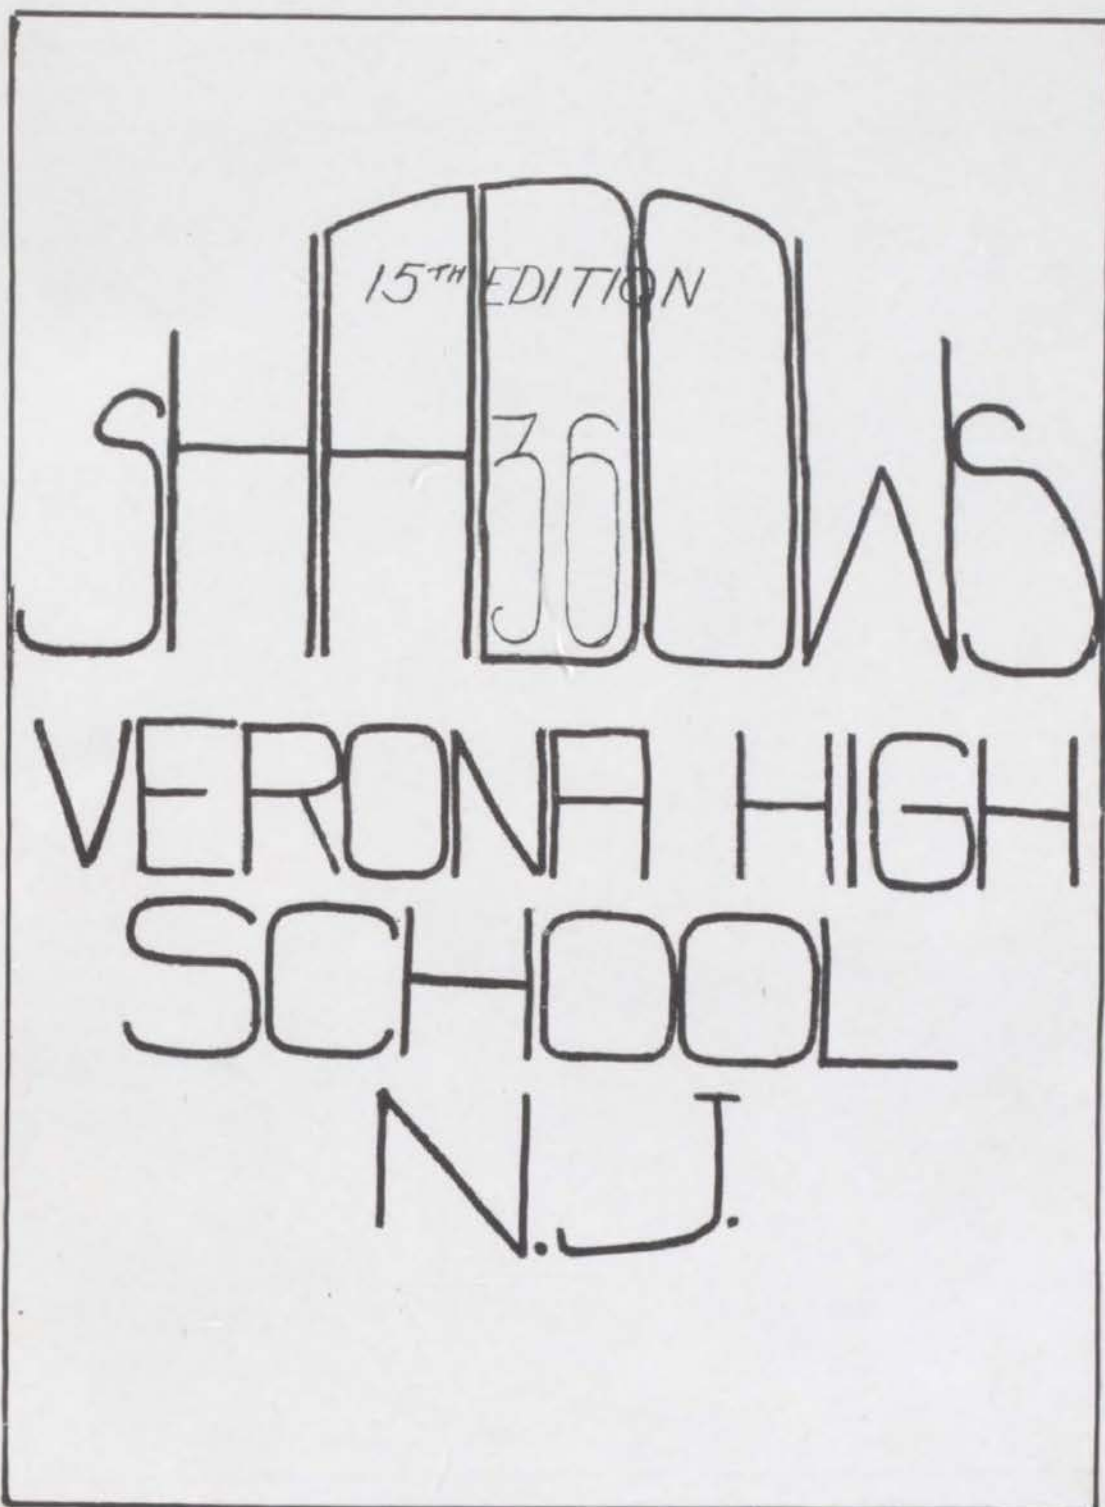 15TH EDITION
SHADOWS
36
VERONA HIGH
SCHOOL
N.J.